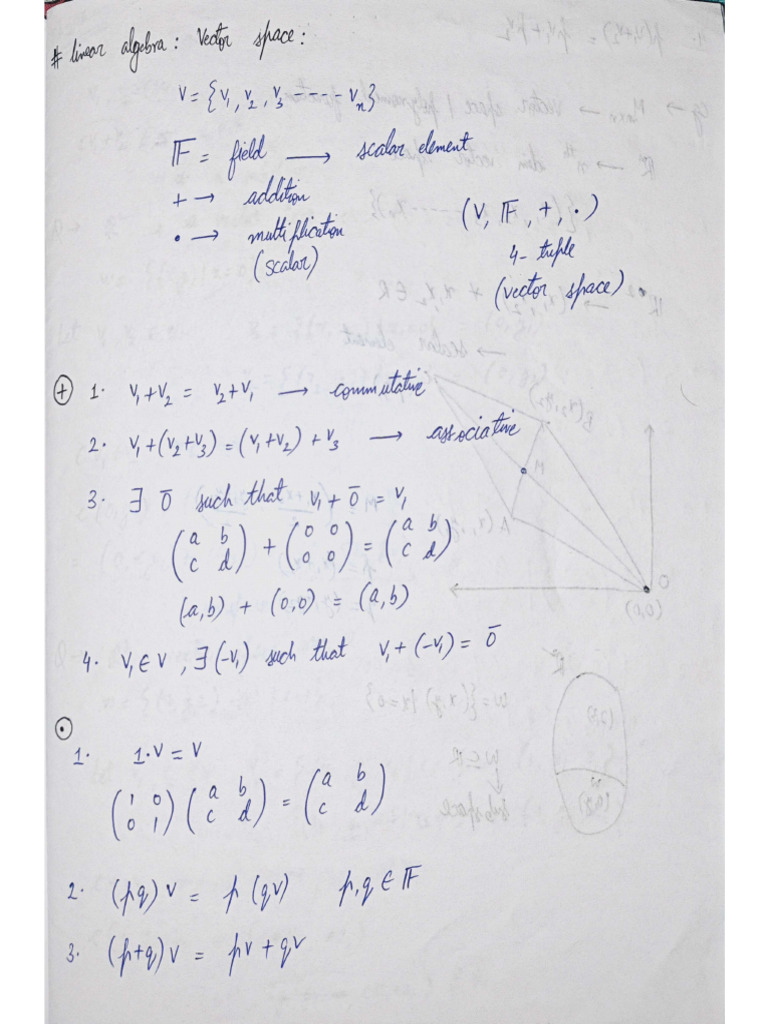 # linear algebra: Vector space:
V = {v₁, v₂, v₃ ----- vₙ}
𝔽 = field ⟶ scalar element
+ → addition
• → multiplication
(scalar)
(V, 𝔽, +, •)
4-tuple
(vector space)
⊕ 1. v₁+v₂ = v₂+v₁ ⟶ commutative
2. v₁+(v₂+v₃) = (v₁+v₂)+v₃ ⟶ associative
3. ∃ 0̄ such that v₁+0̄ = v₁
(a b
c d) + (0 0
0 0) = (a b
c d)
(a,b) + (0,0) = (a,b)
4. v₁ ∈ V, ∃(-v₁) such that v₁+(-v₁) = 0̄
⊙
1. 1·v = v
(1 0
0 1) (a b
c d) = (a b
c d)
2. (pq)v = p(qv) p,q ∈ 𝔽
3. (p+q)v = pv+qv